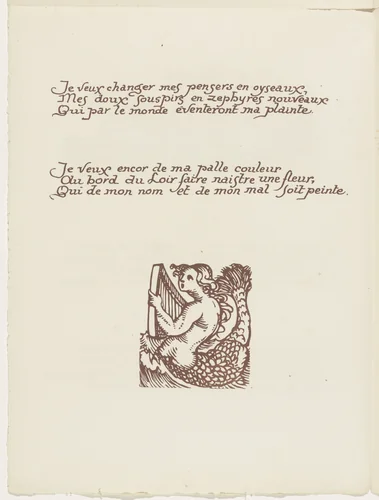 Je veux changer mes pensers en oyseaux,
Mes doux souspirs en zephyres nouveaux
Qui par le monde éventeront ma plainte.
Je veux encor de ma palle couleur
Au bord du Loir faire naistre une fleur,
Qui de mon nom et de mon mal soit peinte.